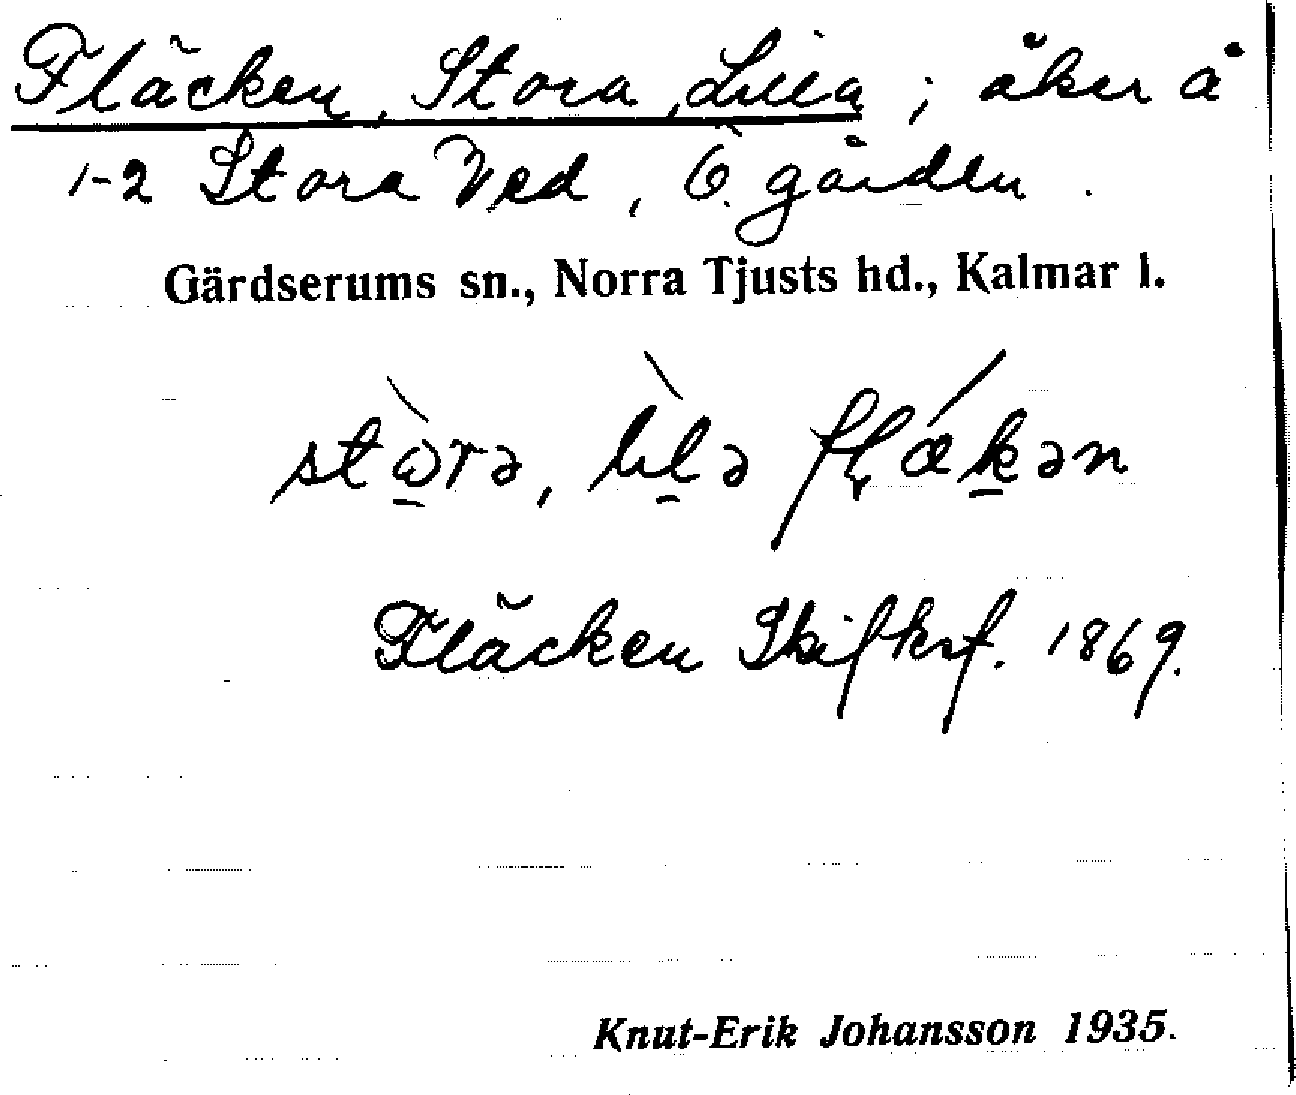 Fläcken, Stora, Lilla ; åker å
1-2 Stora Ved, Ö. gården.
Gärdserums sn., Norra Tjusts hd., Kalmar l.
stὼrə, lìlə flǽkən
Fläcken Skifkrf. 1869.
Knut-Erik Johansson 1935.